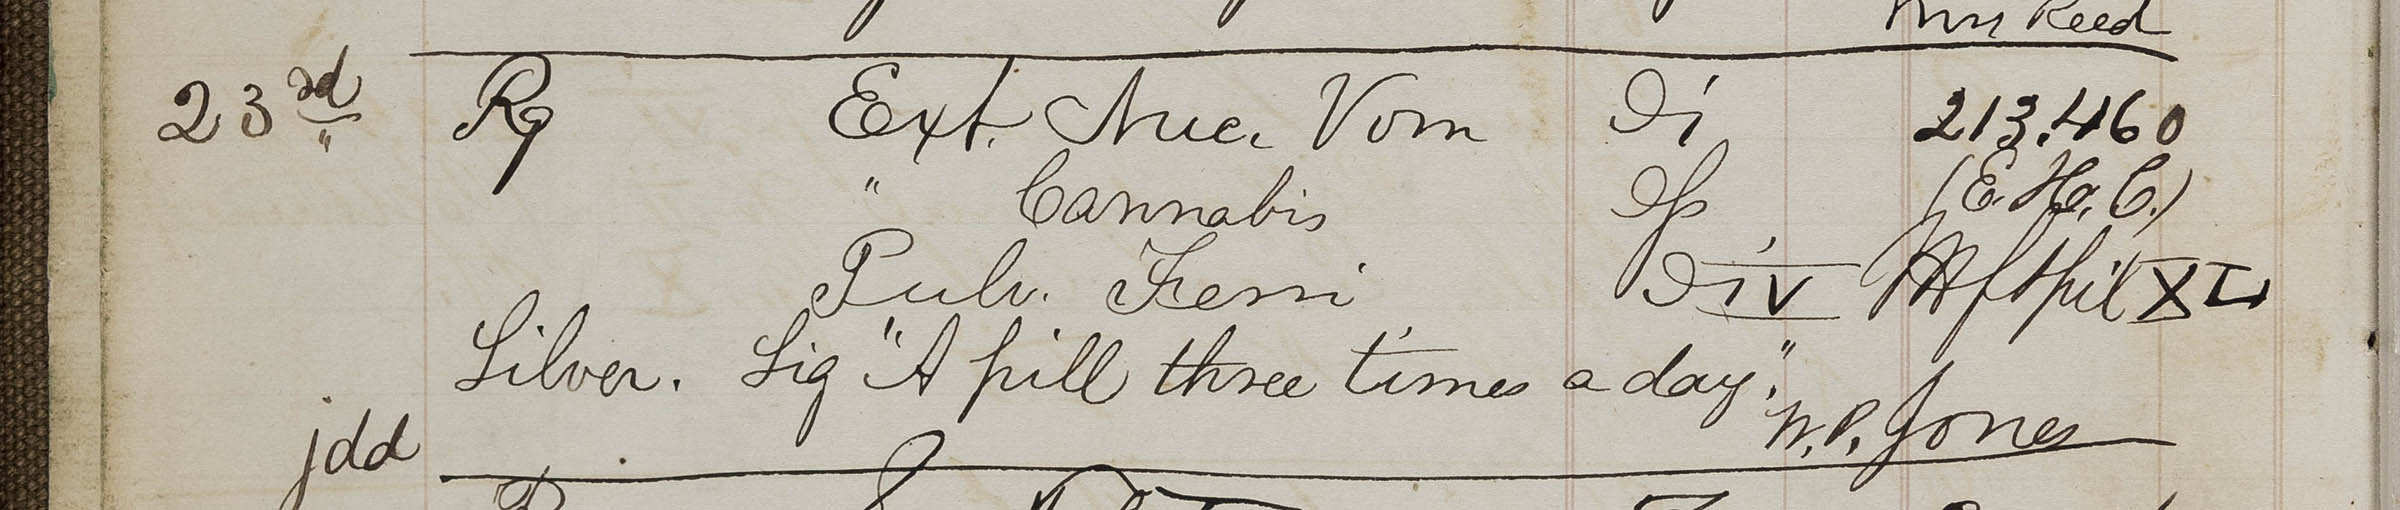 Wm Reed
23rd " Rx Ext. Nuc. Vom ℈i 213.460
" Cannabis ℈ss (E. H. C.)
Pulv. Ferri ℈iv Mft pil XL
Silver. Sig "A pill three times a day."
W. P. Jones
jdd